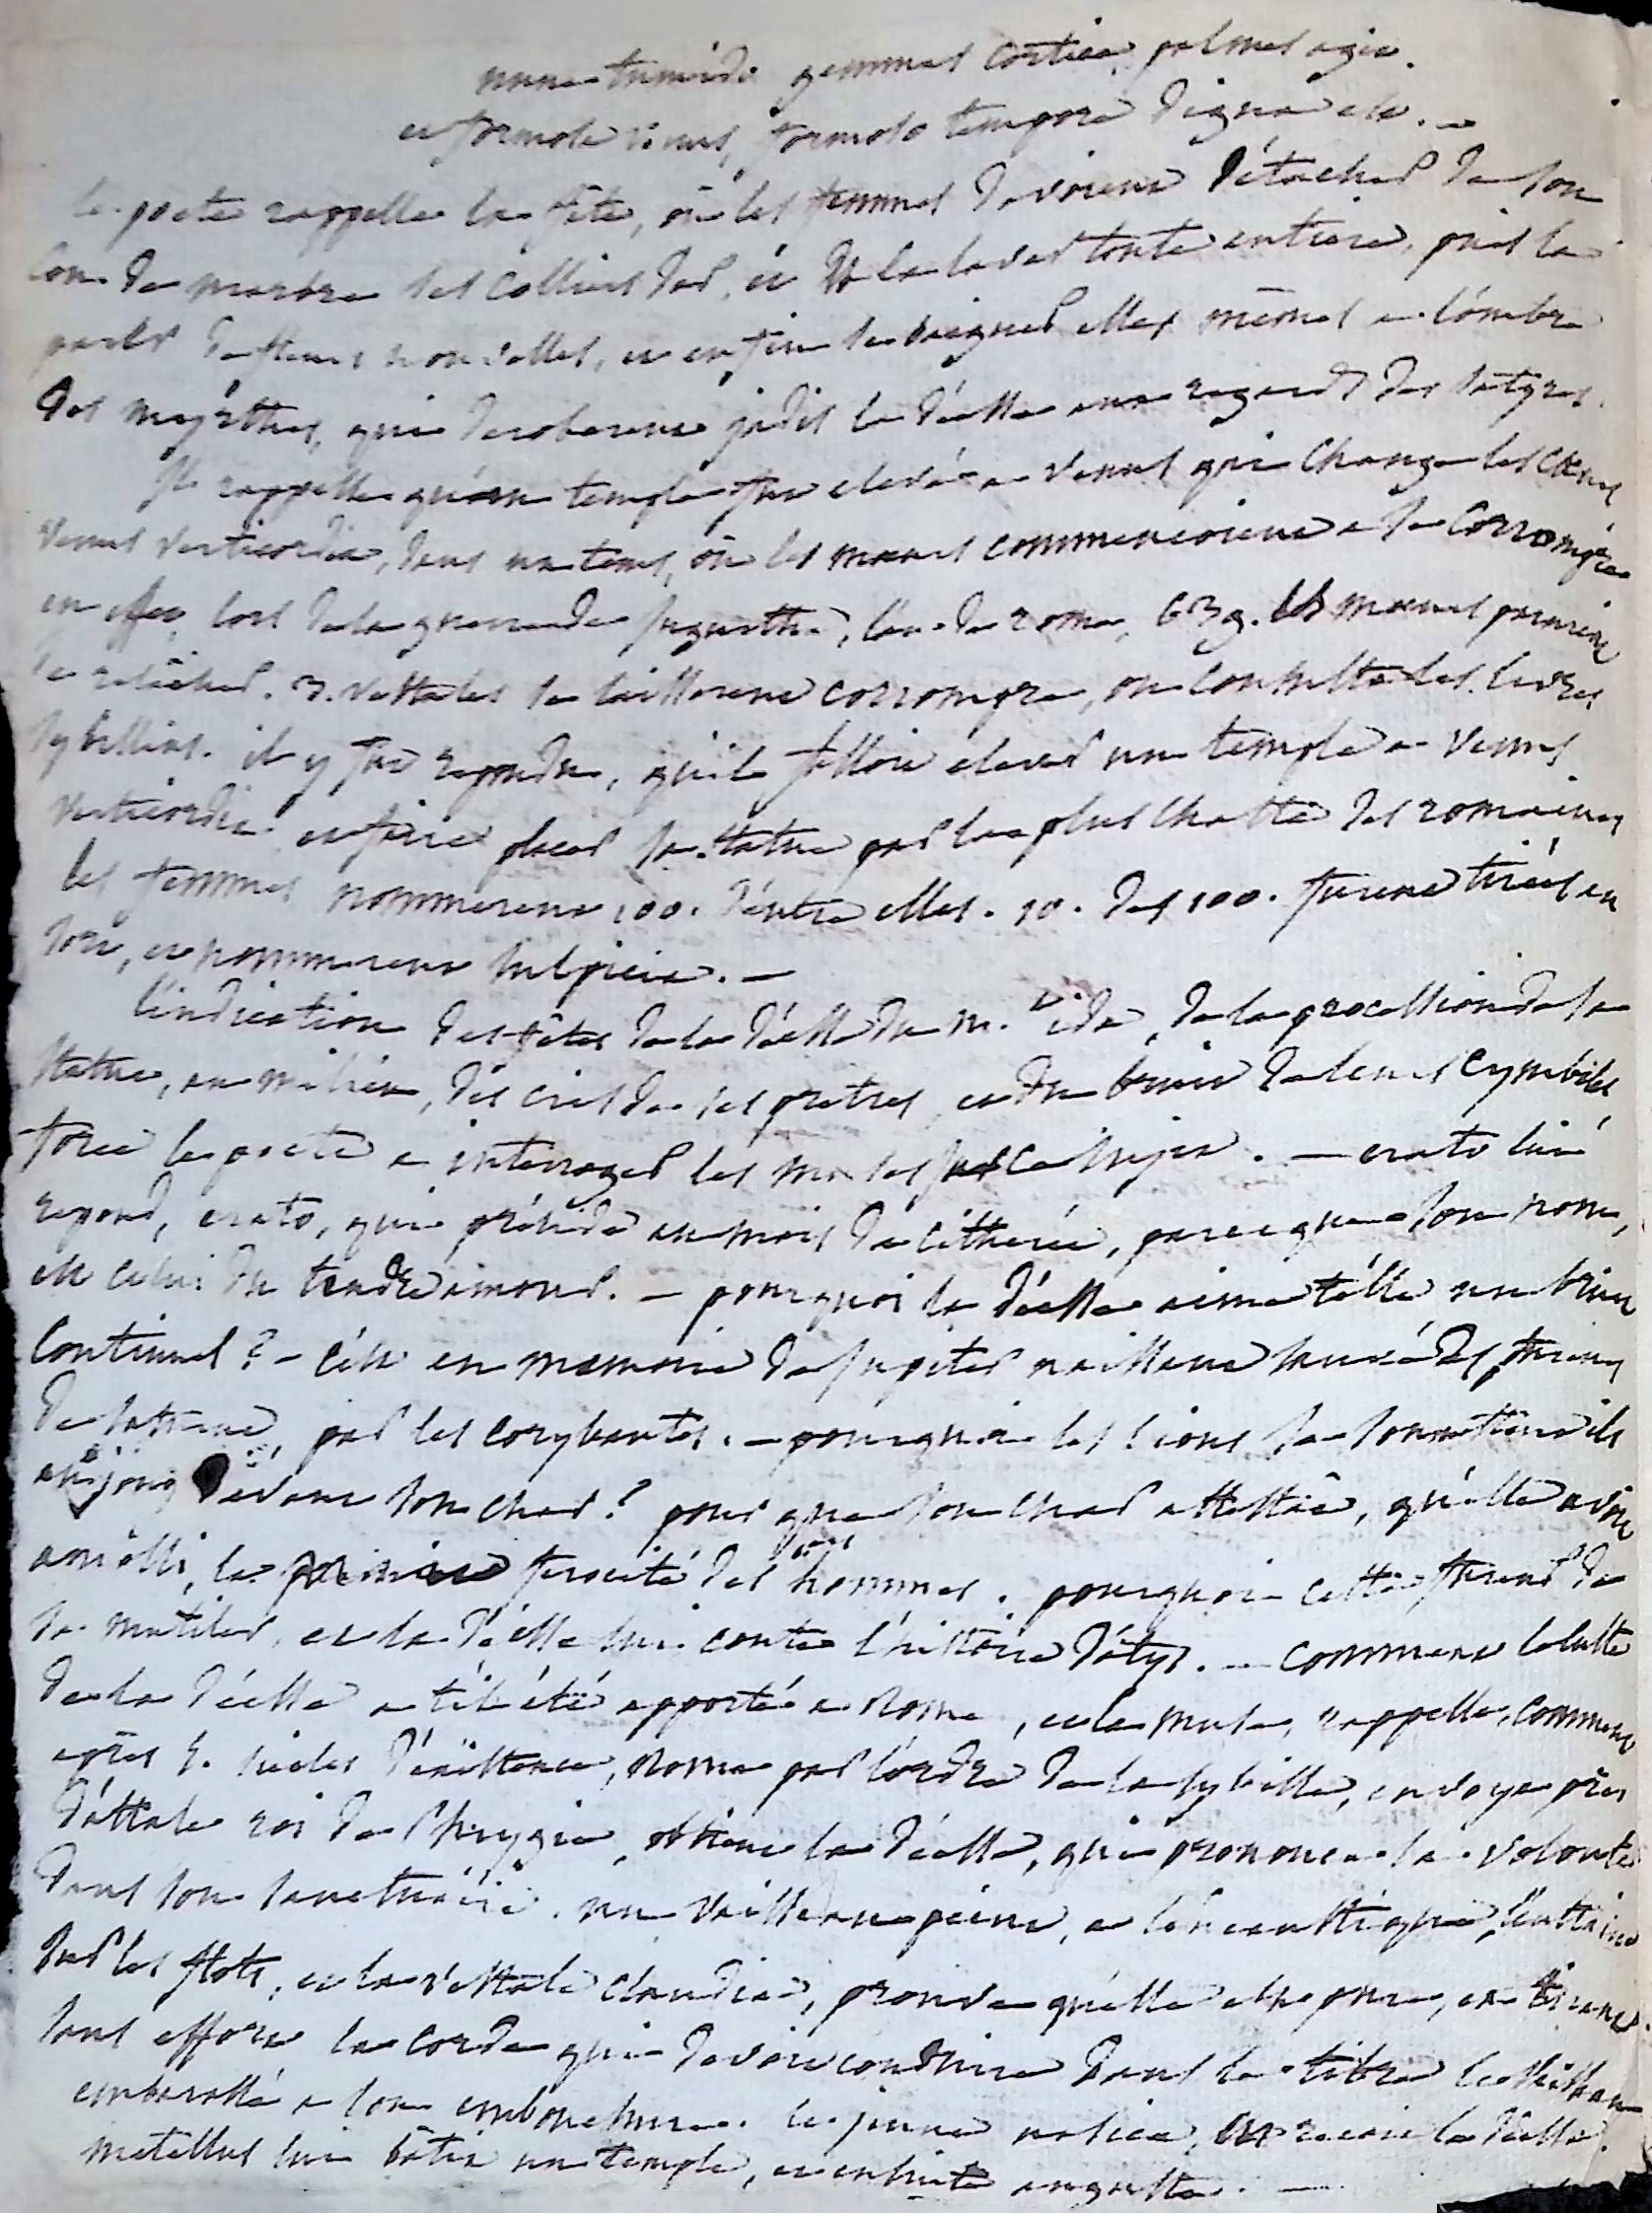 nunc tumido gemmas cortice palmes agit.
et formosa venus, formoso tempore digna est. —
le poete rappelle la fête, où les femmes devoient détacher de son
cou de marbre ses colliers d'or, et la laver toute entiere, puis la
parer de fleurs nouvelles, et enfin se baigner elles mêmes a l'ombre
des myrthes, qui deroberent jadis la déesse aux regards des satyres.
Il rappelle qu'un temple fut elevé a venus qui change les cœurs
venus verticordia, dans un tems, où les mœurs commencoient a se corrompre
en effet, lors de la guerre de jugurtha, l'an de rome, 639. les mœurs parurent
se relâcher. 3. vestales se laisserent corrompre, on consulta les livres
sybillins. il y fut repondu, qu'il falloit elever un temple a venus
verticordia et faire placer sa statue par la plus chaste des romaines
les femmes nommerent 100. d'entre elles. 10. des 100. furent tirées au
sort, et nommerent sulpicia. —
l'indication des fêtes de la déesse du m.t ida, de la procession de sa
statue, au milieu, des cris de ses pretres, et du bruit de leurs cymbales
force le poete a interroger les muses sur ce sujet. — erato lui
repond, erato, qui préside au mois de cithérée, parce que son nom,
est celui du tendre amour. — pourquoi la déesse aime t'elle un bruit
continuel? — c'est en memoire de jupiter naissant sauvé des fureurs
de saturne, par les corybantes. — pourquoi les lions se soumettent ils
au joug devant son char? pour que son char attestât, qu'elle avoit
amolli, la ferocité des hommes. pourquoi cette fureur de
se mutiler, et la déesse lui conte l'histoire d'atys. — comment le culte
de la déesse a t'il été apporté a Rome, et la muse, rappelle, comment
après 5. siècles d'existence, Rome par l'ordre de la sybille, envoye près
d'attale roi de Phrygie, obtient la déesse, qui prononca sa volonté
dans son sanctuaire. un vaisseau peint, a l'encaustique, l'entraine
sur les flots, et la vestale claudia, prouve qu'elle est pure, en tirant
sans effort la corde qui devoit conduire dans le tibre le vaisseau
embarassé a son embouchure. le jeune nasica, recoit la déesse.
metellus lui bâtit un temple, et ensuite auguste. —